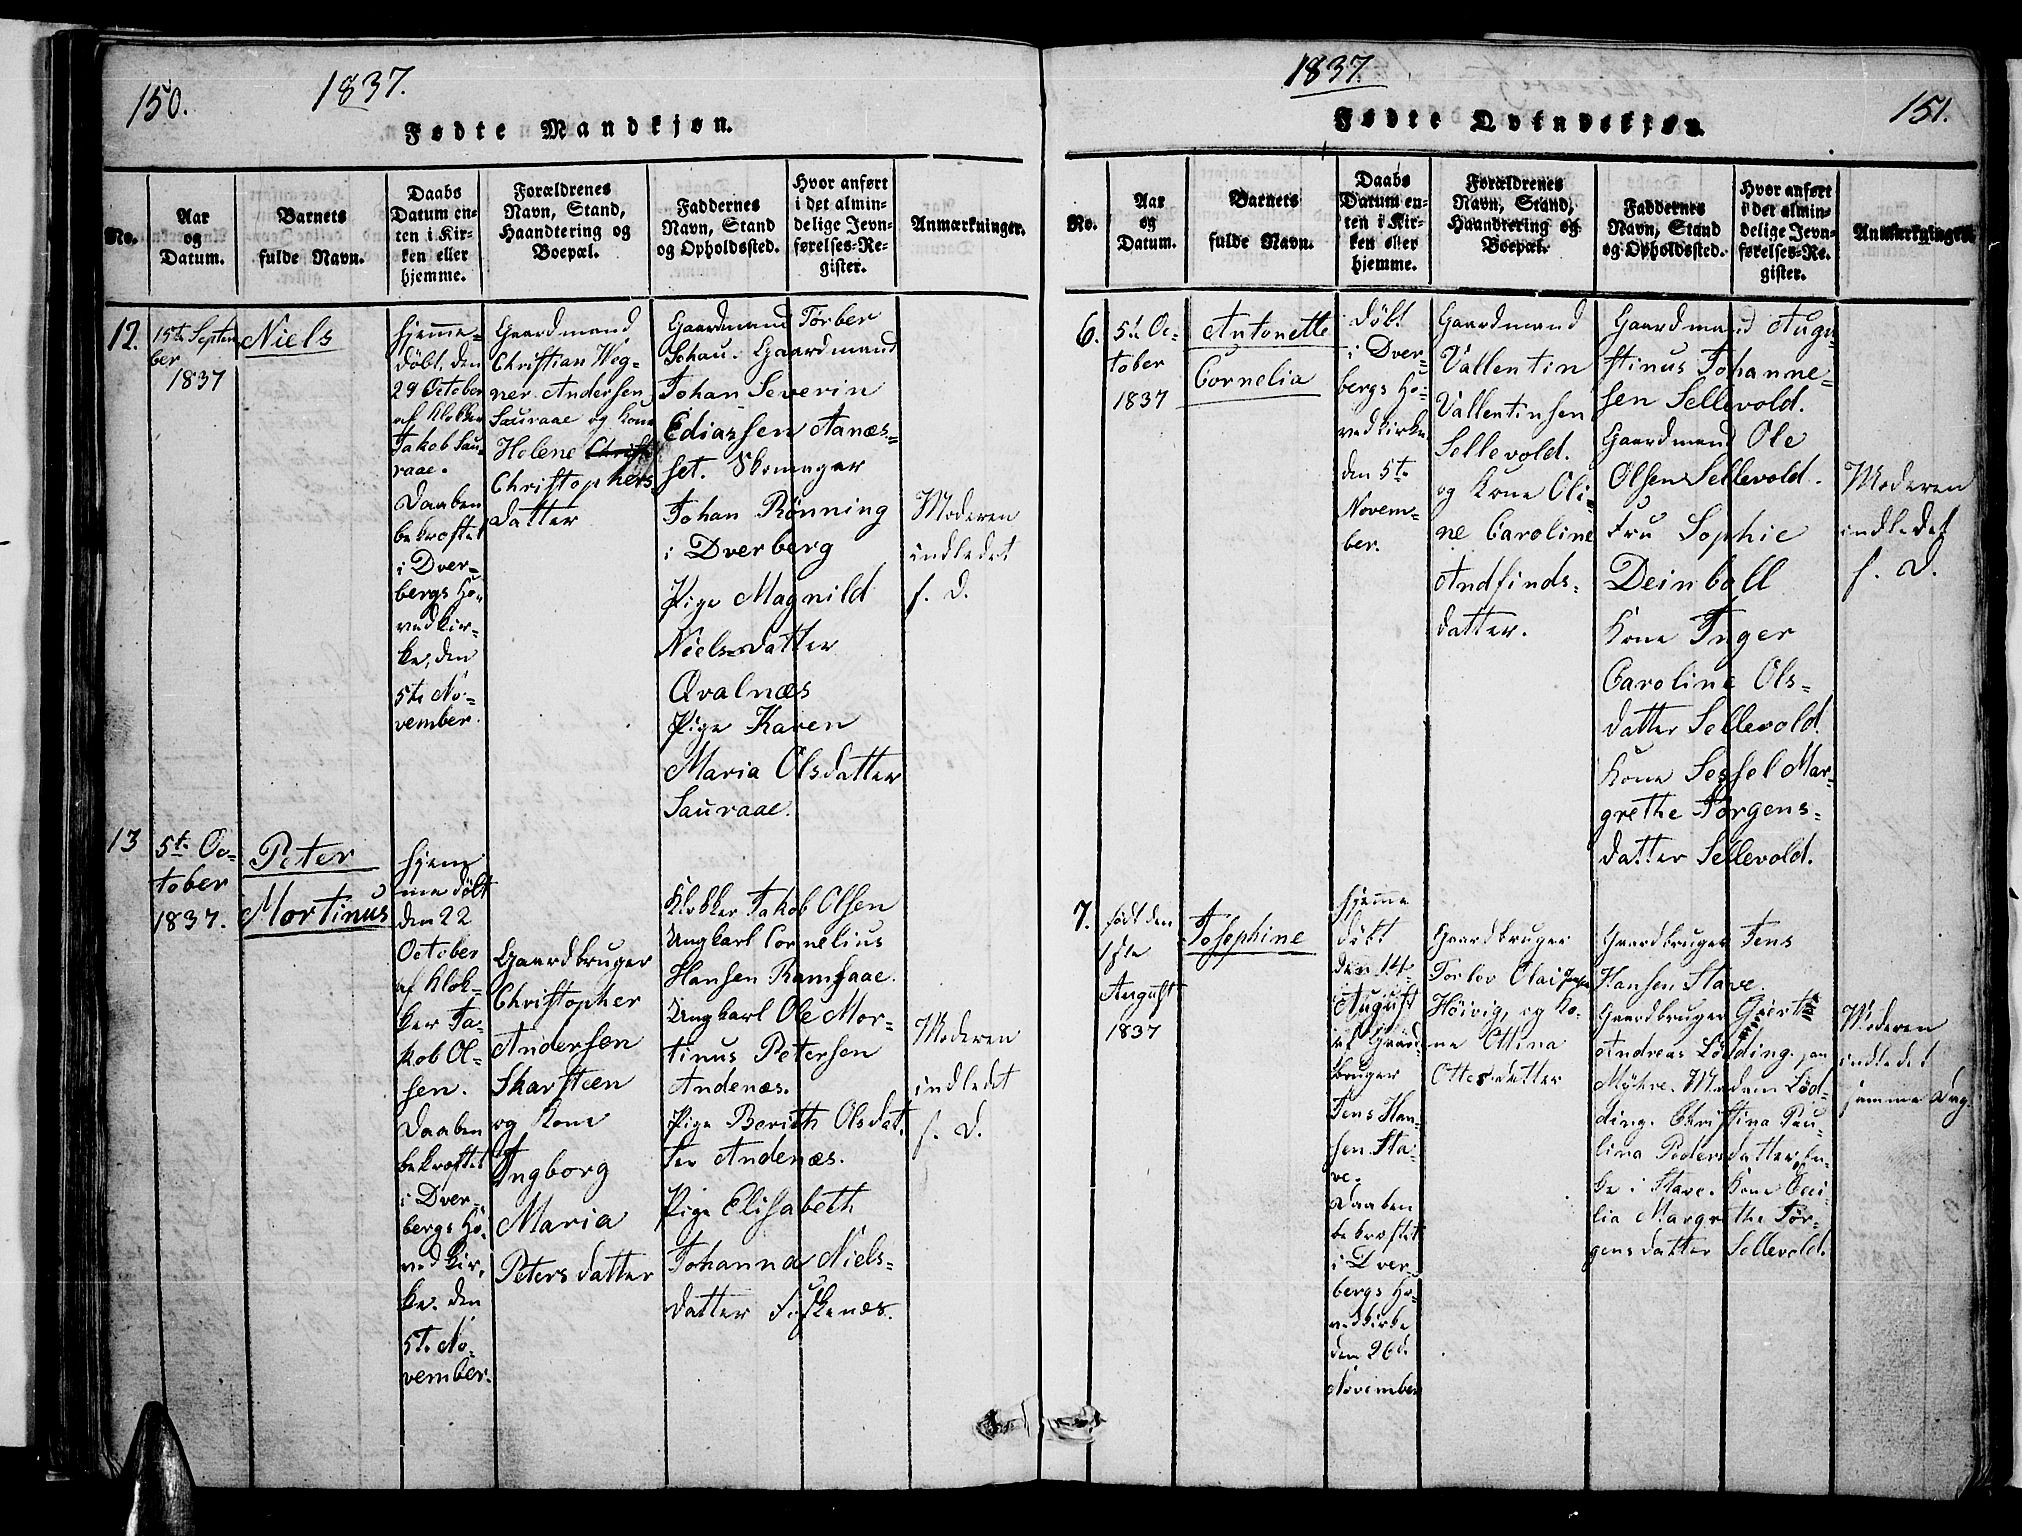 150.
1837.
Fødte Mandkjøn.
No.
Aar
og
Datum.
Barnets
fulde Navn.
Daabs
Datum en-
ten i Kir-
ken eller
hjemme.
Forældrenes
Navn, Stand,
Haandtering og
Boepæl.
Faddernes
Navn, Stand
og Opholdssted.
Hvor anført
i det almin-
delige Jevn-
førelses-Re-
gister.
Anmærkninger.
12.
15te Septem
ber
1837
Niels
Hjemme-
döbt, den
29 October
af Klokker
Jakob Sau-
raae.
Daaben
bekræftet
i Dver-
bergs Ho-
vedkir-
ke, den
5te No-
vember.
Gaardmand
Christian Weg-
ner Andersen
Sauraae og Kone
Helene Christ
Christophers
datter
Gaardmand Törber
Gaardmand
Johan Severin
Ediassen Aanæs-
set. Skomager
Johan Rönning
i Dverberg
Pige Magnild
Nielsdatter
Qvalnæs
Pige Karen
Maria Olsdatter
Sauraae.
Moderen
indledet
s. D.
13
5te Oc-
tober
1837.
Peter
Mortinus
Hjem
me döbt
den 22
October
af Klok-
ker Ja-
kob Ol-
sen.
Daaben
bekræftet
i Dver-
bergs Ho-
vedkir-
ke. den
5te No-
vember.
Gaardbruger
Christopher
Andersen
Skarsteen
og Kone
Ingborg
Maria
Petersdatter
Klokker Jakob Olsen
Ungkarl Cornelius
Hansen Ramsaae.
Ungkarl Ole Mor-
tinus Petersen
Andenæs.
Pige Berith Olsdat-
ter Andenæs.
Pige Elisabeth
Johanna Niels-
datter
Moderen
indledet
s. D.
1837.
151.
Fødte Qvindekjøn.
No.
Aar
og
Datum.
Barnets
fulde Navn.
Daabs
Datum en-
ten i Kir-
ken eller
hjemme.
Forældrenes
Navn, Stand,
Haandtering og
Boepæl.
Faddernes
Navn, Stand
og Opholdssted.
Hvor anført
i det almin-
delige Jevn-
førelses-Re-
gister.
Anmærkninger.
6.
5te Oc-
tober
1837
Antonette
Cornelia
Döbt
i Dver-
bergs Ho-
vedkirke
den 5te
Novem-
ber.
Gaardmand
Vallentin
Vallentinsen
Sellevold.
og Kone Oli-
ne Caroline
Andfinds-
datter.
Gaardmand Augu-
stinus Johanne-
sen Sellevold.
Gaardmand Ole
Olsen Sellevold.
Fru Sophie
Deinboll
Kone Inger
Caroline Ols-
datter Sellevold.
Kone Sessel Mar-
grethe Jörgens-
datter Sellevold.
Moderen
indledet
s. D.
7.
födt den
1ste
August
1837
Josephine
Hjemme
döbt
den 14
August
af Gaard-
bruger
Jens Han-
sen Sta-
ve.
Daaben
bekræftet
i Dver-
bergs Ho-
vedkirke
den 26de
November
Gaardbruger
Torlov Olai
Höivig, og Ko-
ne Ottina
Ottersdatter
Gaardbruger Jens
Hansen Stave.
Gaardbruger Giert
Andreas Lödding.
Myhre. Madam Löd-
ding. Christina Pau-
lina Pedersdatter, En-
ke i Stave. Kone Ceci-
lia Margrethe Jör-
gensdatter Sellevold.
Moderen
indledet
samme Dag.